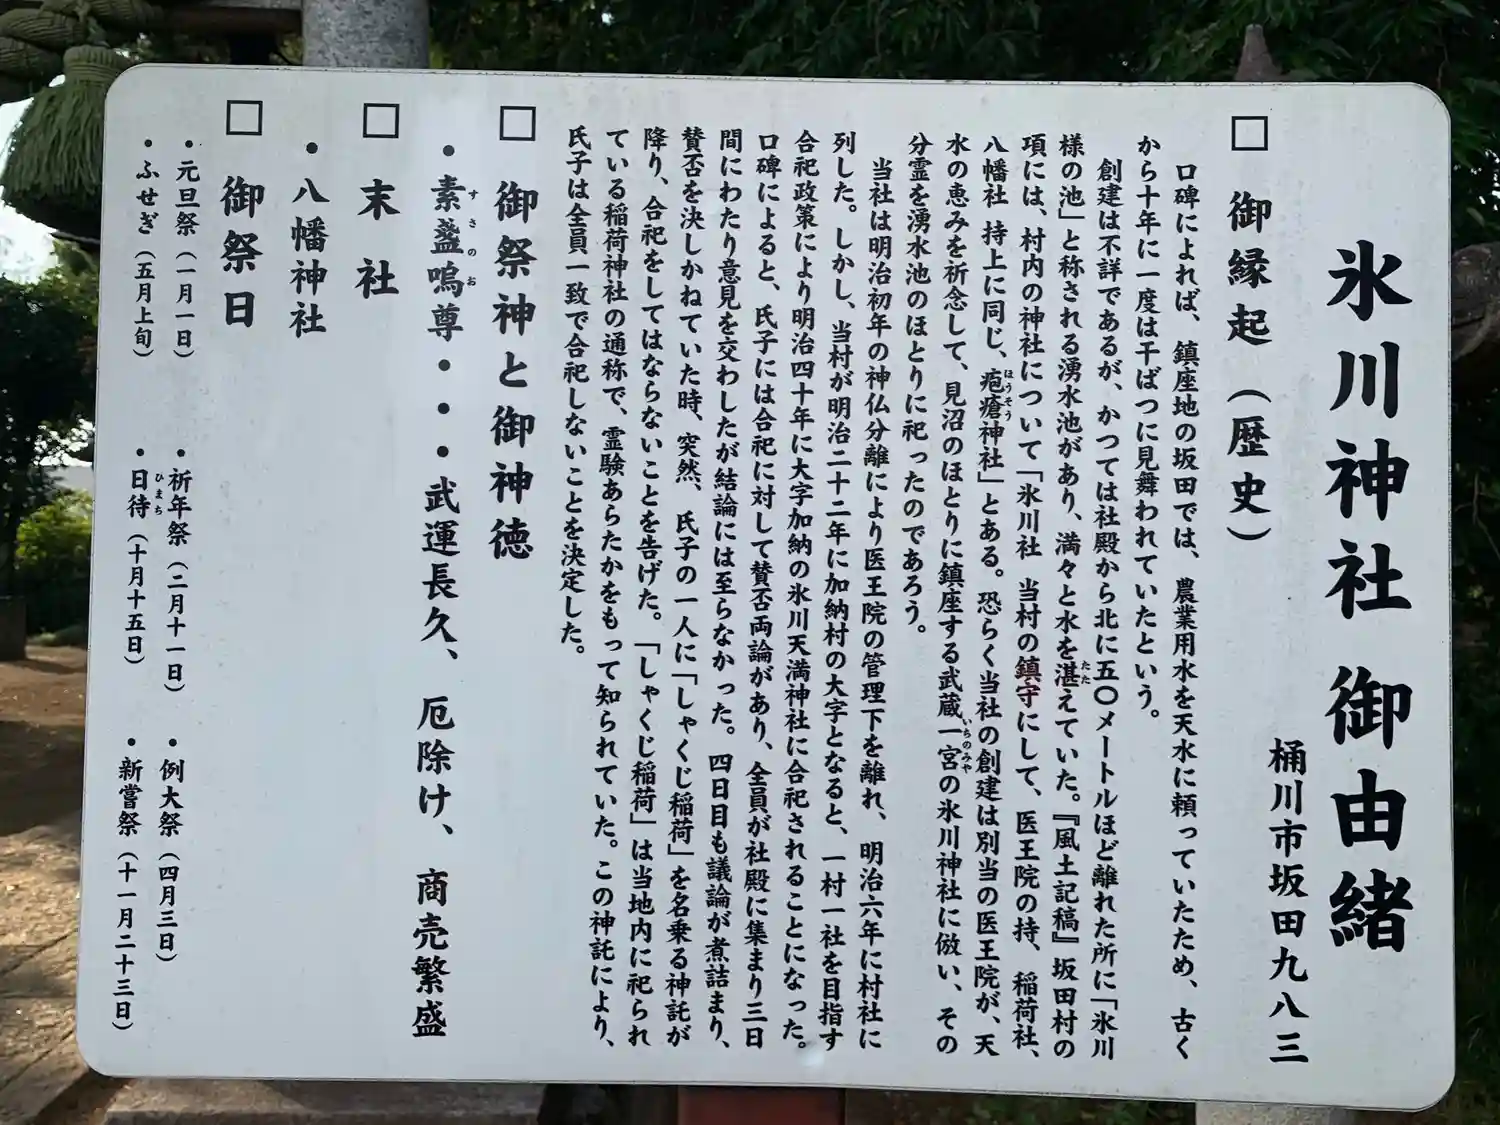 氷川神社 御由緒
桶川市坂田九八三
□ 御縁起(歴史)
口碑によれば、鎮座地の坂田では、農業用水を天水に頼っていたため、古く
から十年に一度は干ばつに見舞われていたという。
創建は不詳であるが、かつては社殿から北に五〇メートルほど離れた所に「氷川
様の池」と称される湧水池があり、満々と水を湛えていた。『風土記稿』坂田村の
たた
項には、村内の神社について「氷川社 当村の鎮守にして、医王院の持、稲荷社、
八幡社 持上に同じ、疱瘡神社」とある。恐らく当社の創建は別当の医王院が、天
ほうそう
水の恵みを祈念して、見沼のほとりに鎮座する武蔵一宮の氷川神社に倣い、その
いちのみや
分霊を湧水池のほとりに祀ったのであろう。
当社は明治初年の神仏分離により医王院の管理下を離れ、明治六年に村社に
列した。しかし、当村が明治二十二年に加納村の大字となると、一村一社を目指す
合祀政策により明治四十年に大字加納の氷川天満神社に合祀されることになった。
口碑によると、氏子には合祀に対して賛否両論があり、全員が社殿に集まり三日
間にわたり意見を交わしたが結論には至らなかった。四日目も議論が煮詰まり、
賛否を決しかねていた時、突然、氏子の一人に「しゃくじ稲荷」を名乗る神託が
降り、合祀をしてはならないことを告げた。「しゃくじ稲荷」は当地内に祀られ
ている稲荷神社の通称で、霊験あらたかをもって知られていた。この神託により、
氏子は全員一致で合祀しないことを決定した。
□ 御祭神と御神徳
・素盞嗚尊・・・武運長久、厄除け、商売繁盛
すさのお
□ 末社
・八幡神社
□ 御祭日
・元旦祭(一月一日) ・祈年祭(二月十一日) ・例大祭(四月三日)
・ふせぎ(五月上旬) ・日待(十月十五日) ・新嘗祭(十一月二十三日)
ひまち